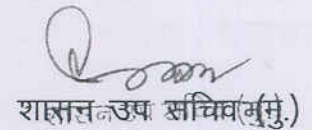 शासन उप सचिव (मु.)